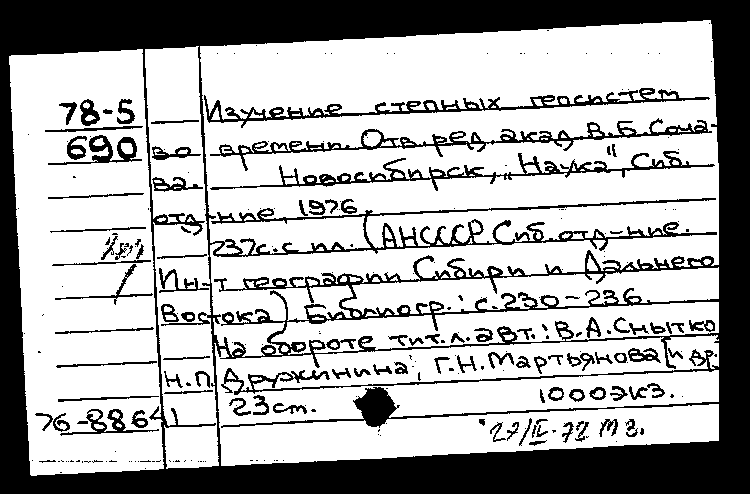 78-5 Изучение степных геосистем
690 во времени. Отв. ред. акад. В.Б. Соча-
ва. Новосибирск, „Наука", Сиб.
отд-ние, 1976.
237с. с ил. (АНСССР. Сиб. отд-ние.
Ин-т географии Сибири и Дальнего
Востока). Библиогр.: с. 230-236.
На обороте тит. л. авт.: В.А. Снытко,
Н.П. Дружинина, Г.Н. Мартьянова [и др.
76-88641 23см. 1000экз.